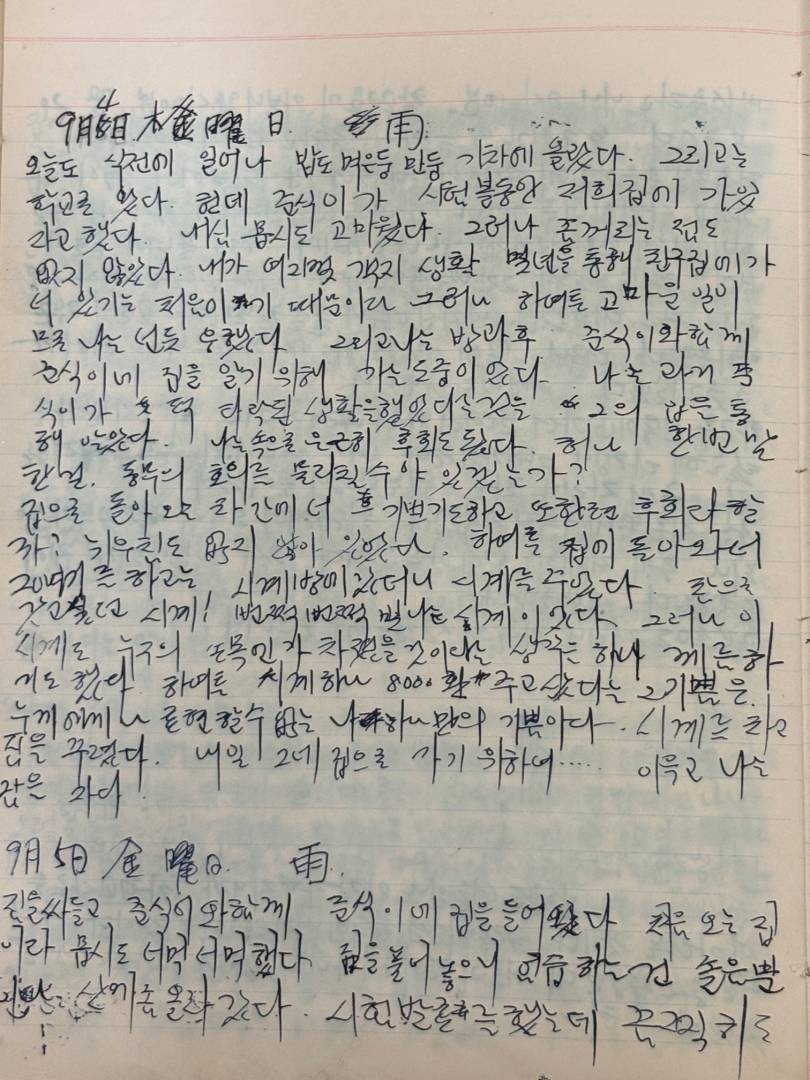 9月4日. 木曜日. 雨.
오늘도 식전에 일어나 밥도 먹은둥 만둥 기차에 올랐다. 그리고는
학교로 왔다. 헌데 준식이가 시험 볼동안 저희집에 가있
라고 했다. 내심 몹시도 고마웠다. 그러나 꺼리는 점도
없지 않았다. 내가 여러 객지 생활 몇년을 통해 친구집에가
서 있기는 처음이기 때문이다 그러나 하여튼 고마운 일이
므로 나는 선듯 응했다 그리고나는 방과후 준식이와함께
준식이네 집을 알기 위해 가는도중이였다 나는 과거 준
식이가 타락된 생활을했었다는것을 그의 입을 통
해 알았다. 나는속으로 은근히 후회도 됬다. 허나 한번 말
한걸. 동무의 호의를 물리칠수야 있겠는가?
집으로 돌아 오는 차간에서 기쁘기도하고 또한편 후회라 할
까? 뉘우침도 없지 않아 있었다. 하여튼 집에 돌아와서
시계방에 갔더니 시계를 주었다.
갖고싶던 시계! 번쩍번쩍 빛나는 시계이였다. 그러나 이
시계도 누구의 손목인가 차졌을것이라는 생각은 하나 께름하
기도 했다. 하여튼 시계하나 8000환 주고 샀다는 그기쁨은
누게에게나 표현할수 없는 나하나만의 기쁨이다. 시계를 차고
짐을 꾸렸다. 내일 그네 집으로 가기 위하여..... 이윽고 나는
잠을 자다.
9月 5日 金曜日. 雨.
짐을싸들고 준식이와함께 준식이네 집을 들어왔다 처음 오는 집
이라 몹시도 서먹서먹했다. 짐을 풀어놓으니
산에좀 올라 갔다. 시험발표를했는데 끔찍히도